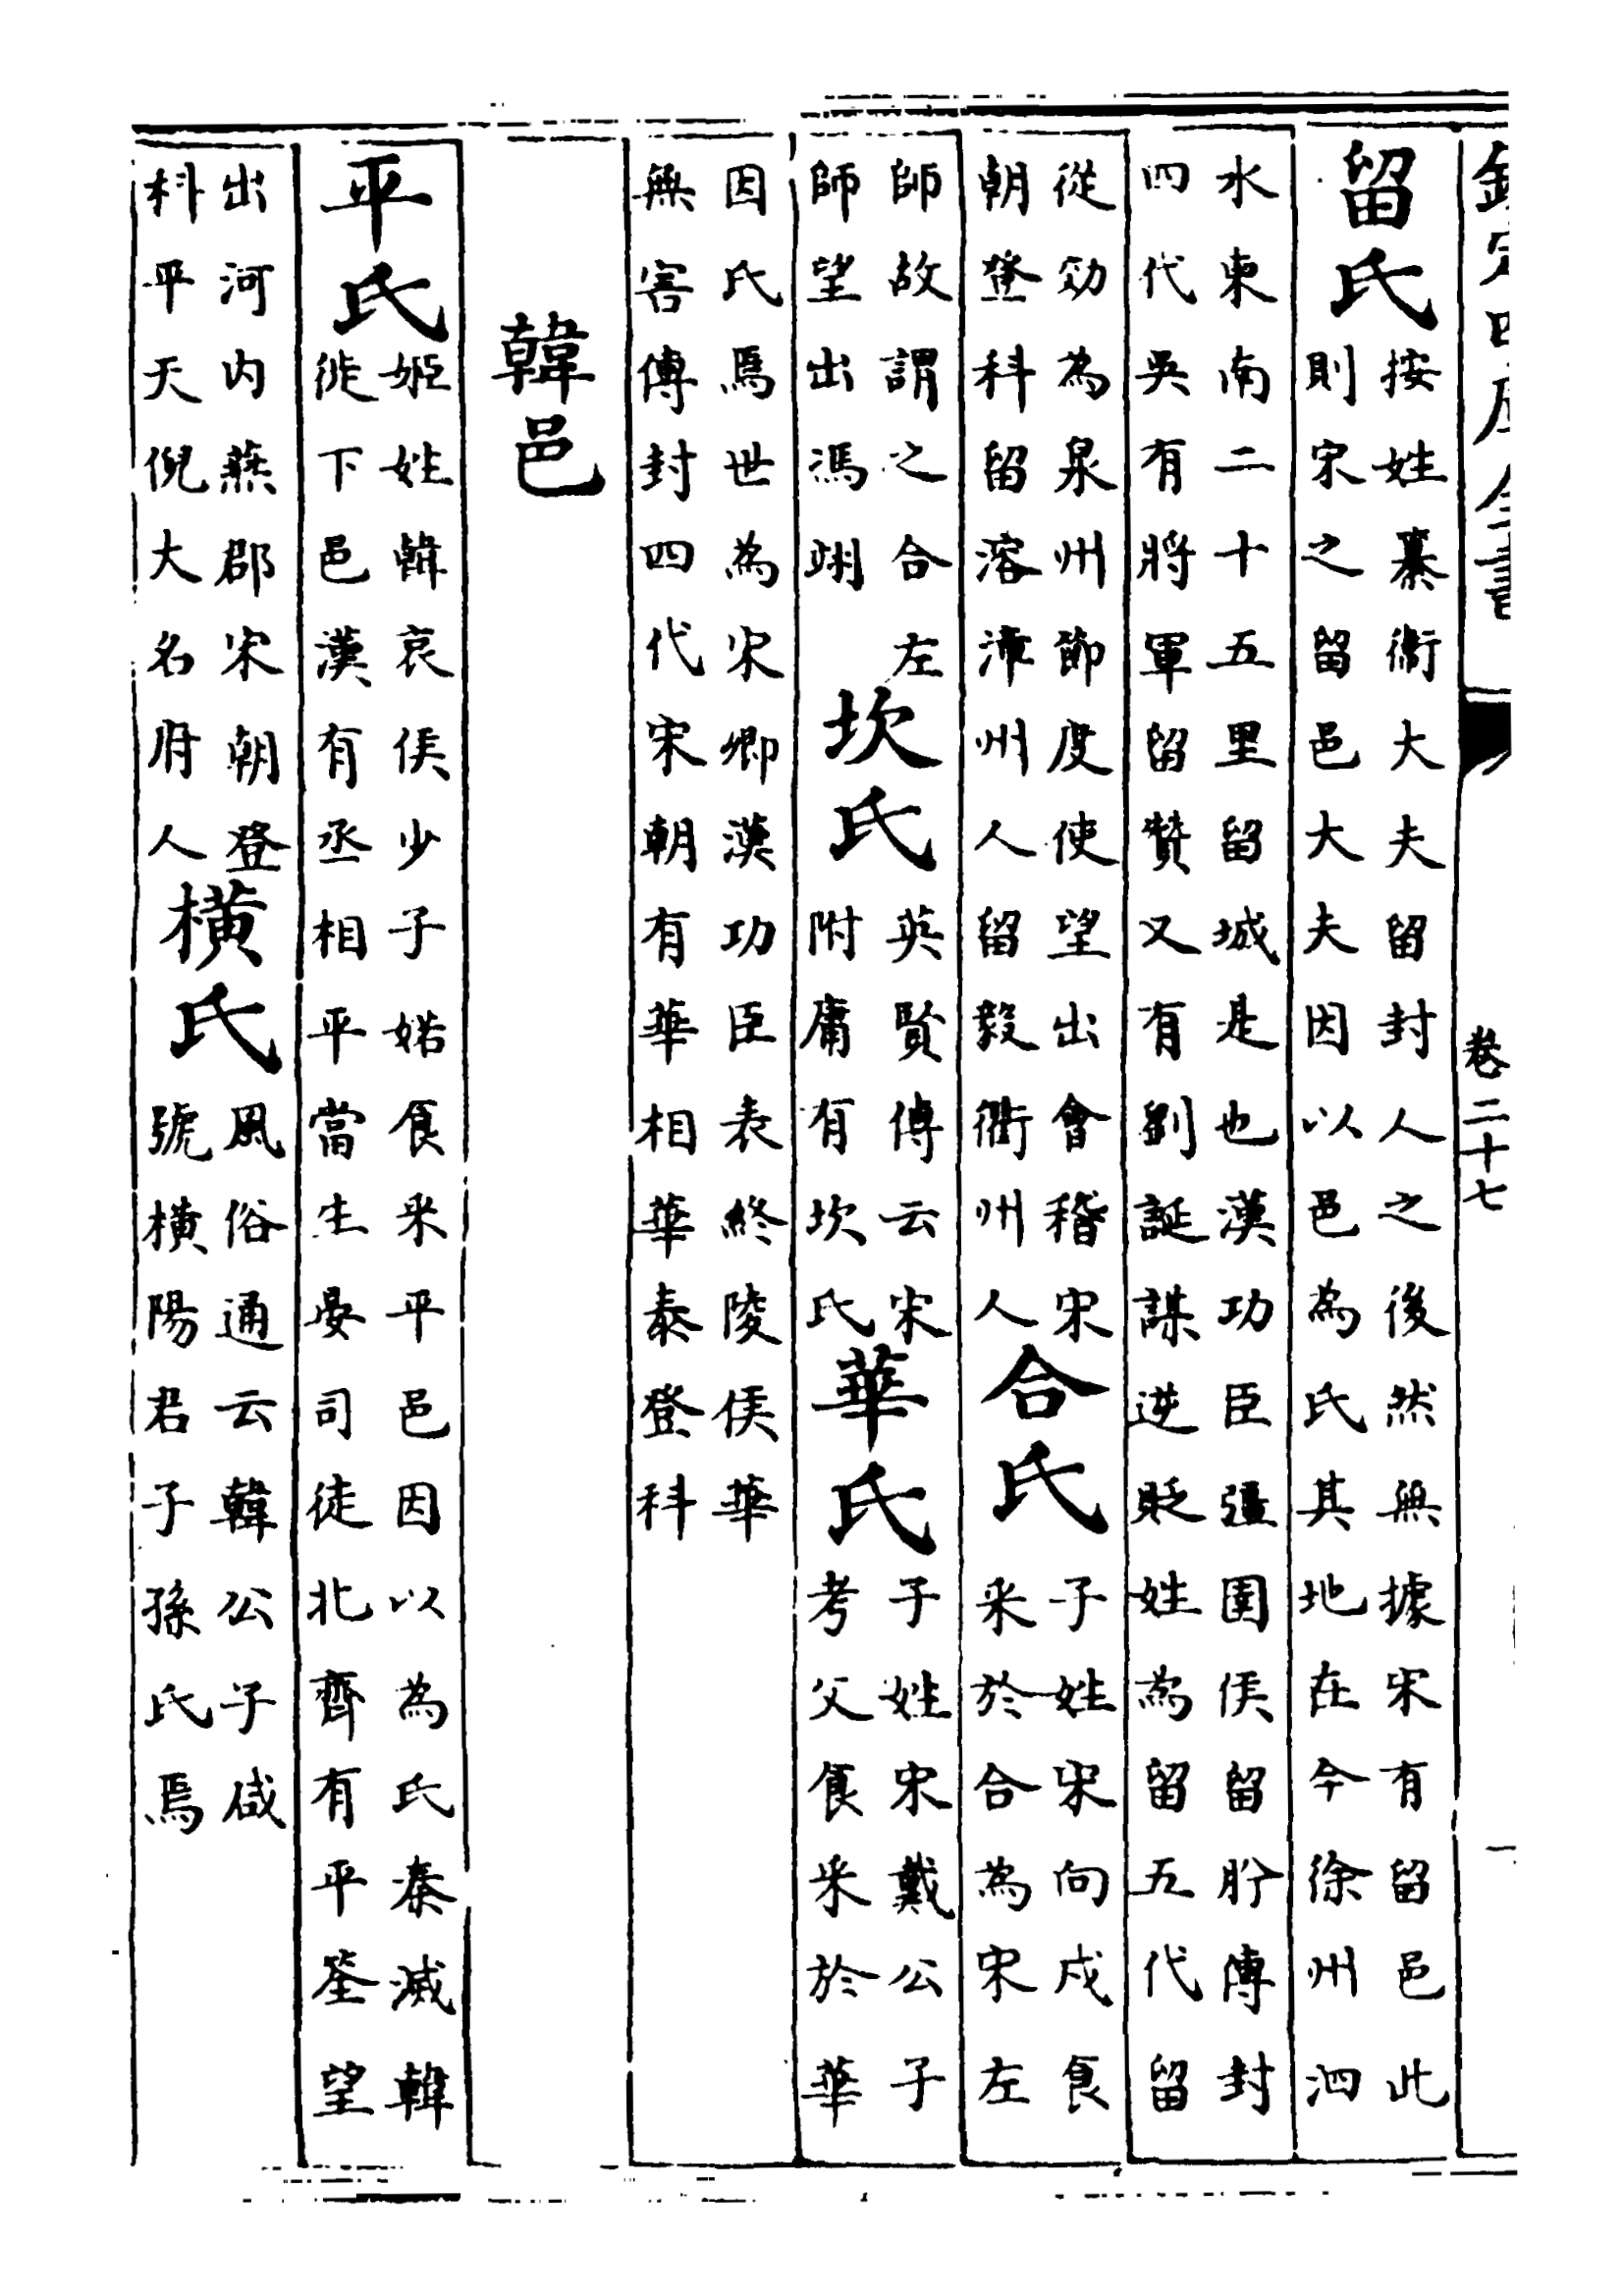 欽定四庫全書
卷二十七
留氏
按姓纂衛大夫留封人之後然無據宋有留邑此
則宋之留邑大夫因以邑為氏其地在今徐州泗
水東南二十五里留城是也漢功臣彊圉侯留肹傳封
四代吳有將軍留贊又有劉誕謀逆貶姓為留五代留
從効為泉州節度使望出會稽宋
朝登科留溶漳州人留毅衢州人
合氏
子姓宋向戌食
采於合為宋左
師故謂之合左
師望出馮翊
坎氏
英賢傳云宋
附庸有坎氏
華氏
子姓宋戴公子
考父食采於華
因氏焉世為宋卿漢功臣表終陵侯華
無害傳封四代宋朝有華相華泰登科
韓邑
平氏
姬姓韓哀侯少子婼食采平邑因以為氏秦滅韓
徙下邑漢有丞相平當生晏司徒北齊有平筌望
出河内燕郡宋朝登
科平天倪大名府人
橫氏
風俗通云韓公子咸
號橫陽君子孫氏焉